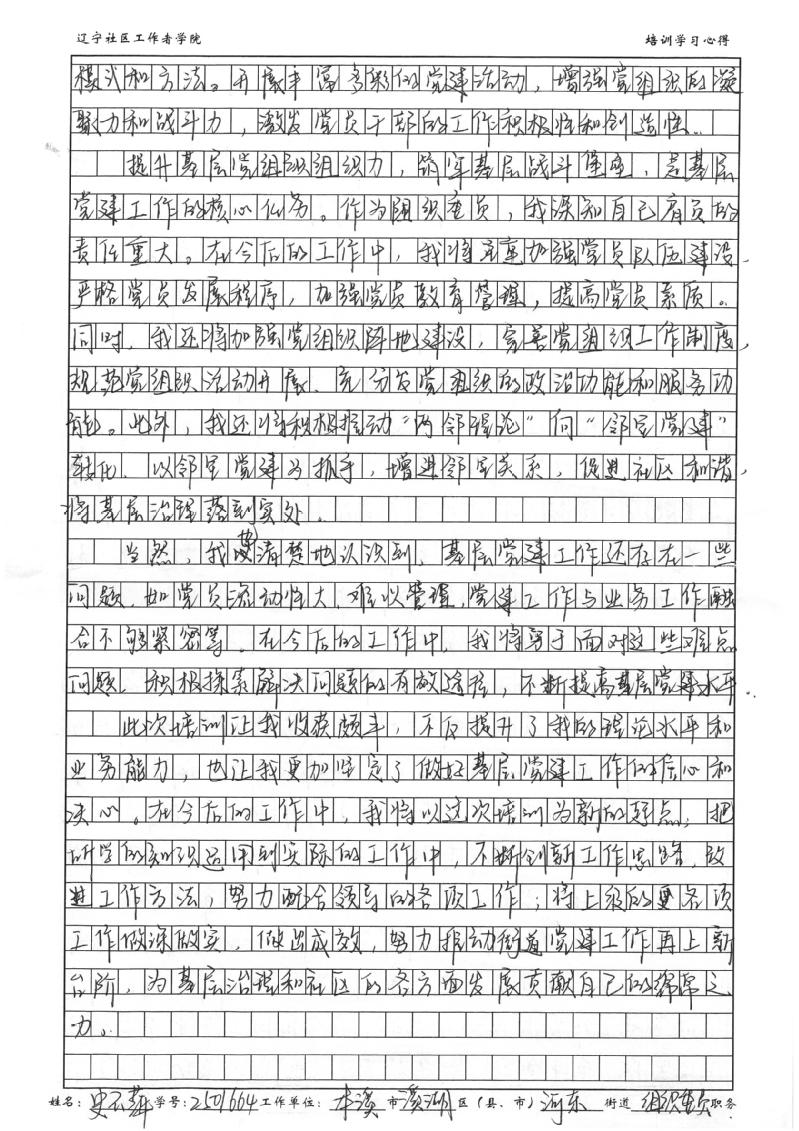 辽宁社区工作者学院 培训学习心得
模式和方法。开展丰富多彩的党建活动，增强党组织的凝
聚力和战斗力，激发党员干部的工作积极性和创造性。
提升基层党组织组织力，筑牢基层战斗堡垒，是基层
党建工作的核心任务。作为组织委员，我深知自己肩负的
责任重大。在今后的工作中，我将注重加强党员队伍建设，
严格党员发展程序，加强党员教育管理，提高党员素质。
同时，我还将加强党组织阵地建设，完善党组织工作制度，
规范党组织活动开展，充分发党组织的政治功能和服务功
能。此外，我还将积极推动“两邻理论”向“邻里党建”
转化，以邻里党建为抓手，增进邻里关系，促进社区和谐，
将基层治理落到实处。
当然，我也清楚地认识到，基层党建工作还存在一些
问题，如党员流动性大，难以管理，党建工作与业务工作融
合不够紧密等。在今后的工作中，我将勇于面对这些难点
问题，积极探索解决问题的有效途径，不断提高基层党建水平。
此次培训让我收获颇丰，不仅提升了我的理论水平和
业务能力，也让我更加坚定了做好基层党建工作的信心和
决心。在今后的工作中，我将以这次培训为新的起点，把
所学的知识运用到实际的工作中，不断创新工作思路，改
进工作方法，努力配合领导的各项工作；将上级的各项
工作做深做实，做出成效，努力推动街道党建工作再上新
台阶，为基层治理和社区的各方面发展贡献自己的绵薄之
力。
姓名： 史 学号：2501664 工作单位： 本溪 市 溪湖 区（县、市） 河东 街道 组织委员 职务